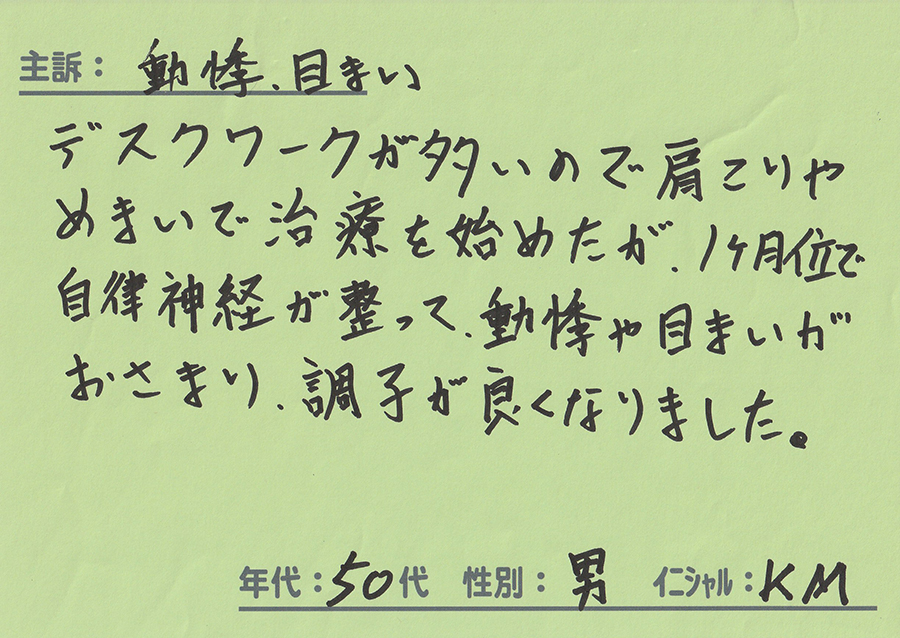 主訴： 動悸、目まい
デスクワークが多いので肩こりや
めまいで治療を始めたが、1ヶ月位で
自律神経が整って、動悸や目まいが
おさまり、調子が良くなりました。
年代：50代 性別：男 イニシャル：KM